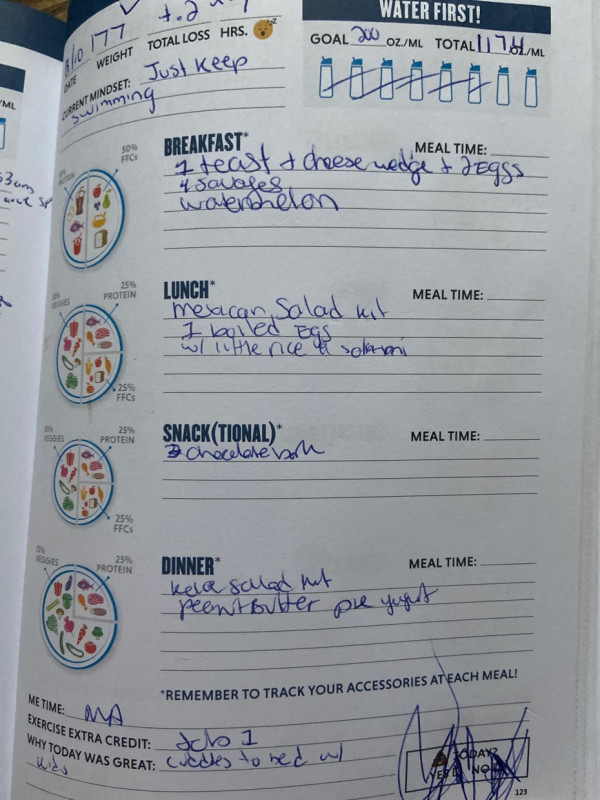 WATER FIRST!
8/10 177
DATE WEIGHT TOTAL LOSS HRS.
GOAL 200 OZ./ML TOTAL 117.4 OZ./ML
CURRENT MINDSET: Just Keep
swimming
50%
FFCs
BREAKFAST* MEAL TIME:
1 toast + cheese wedge + 2 EGGS
watermelon
25%
PROTEIN
VEGGIES
LUNCH* MEAL TIME:
mexican salad kit
1 boiled EGGS
w/ little rice & salami
25%
FFCs
SNACK(TIONAL)* MEAL TIME:
25%
PROTEIN
VEGGIES
chocolate
25%
FFCs
DINNER* MEAL TIME:
25%
PROTEIN
VEGGIES
salad kit
Peanut Butter pie
*REMEMBER TO TRACK YOUR ACCESSORIES AT EACH MEAL!
ME TIME: NA
EXERCISE EXTRA CREDIT: 1
WHY TODAY WAS GREAT: cuddles to bed w/
kids
TODAY?
YES NO
123